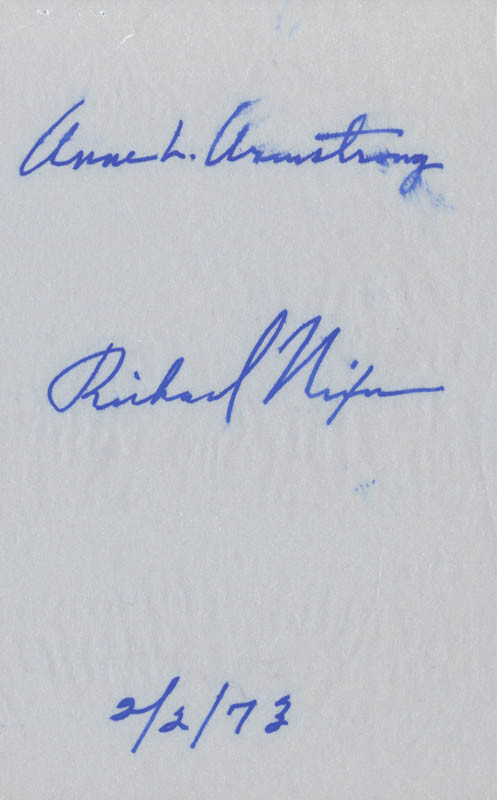 Anne L. Armstrong
Richard Nixon
2/2/73